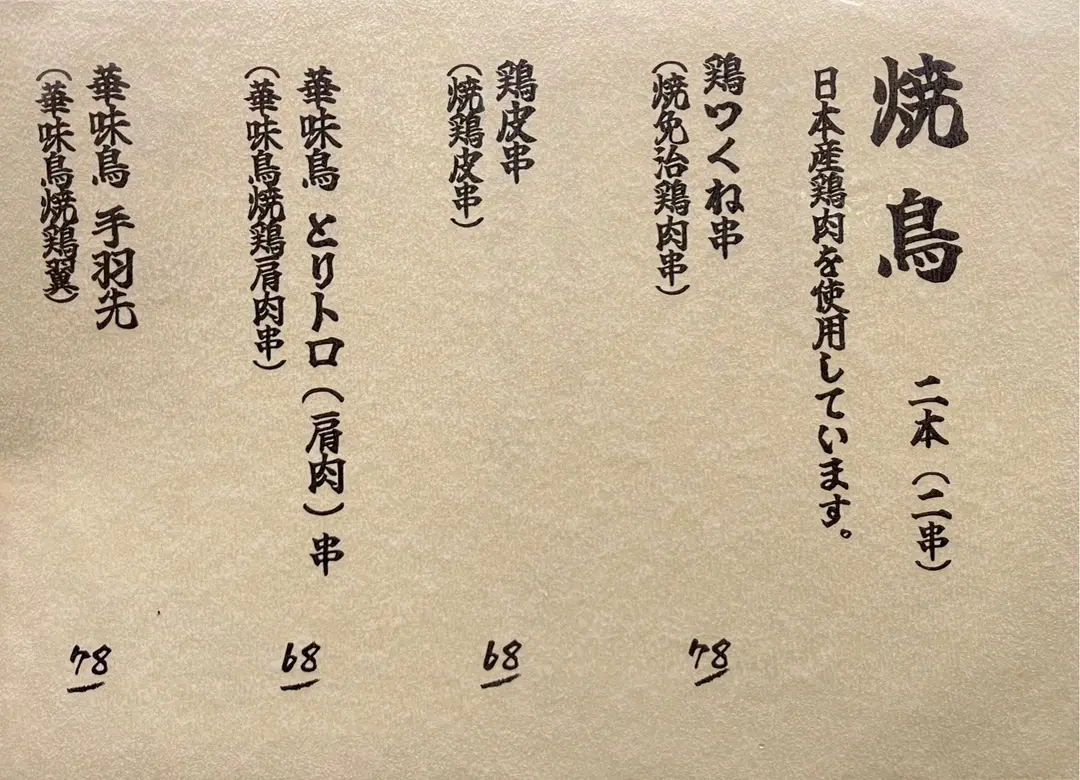 焼鳥 二本（二串）
日本産鶏肉を使用しています。
鶏つくね串
（焼免治鶏肉串）
78
鶏皮串
（焼鶏皮串）
68
華味鳥 とりトロ（肩肉）串
（華味鳥焼鶏肩肉串）
68
華味鳥 手羽先
（華味鳥焼鶏翼）
78